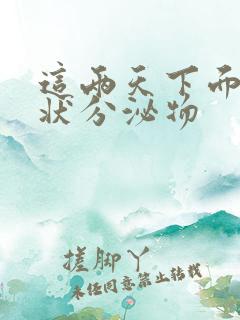 這兩天下而
狀分泌物
搓脚丫
未任同意禁止转载